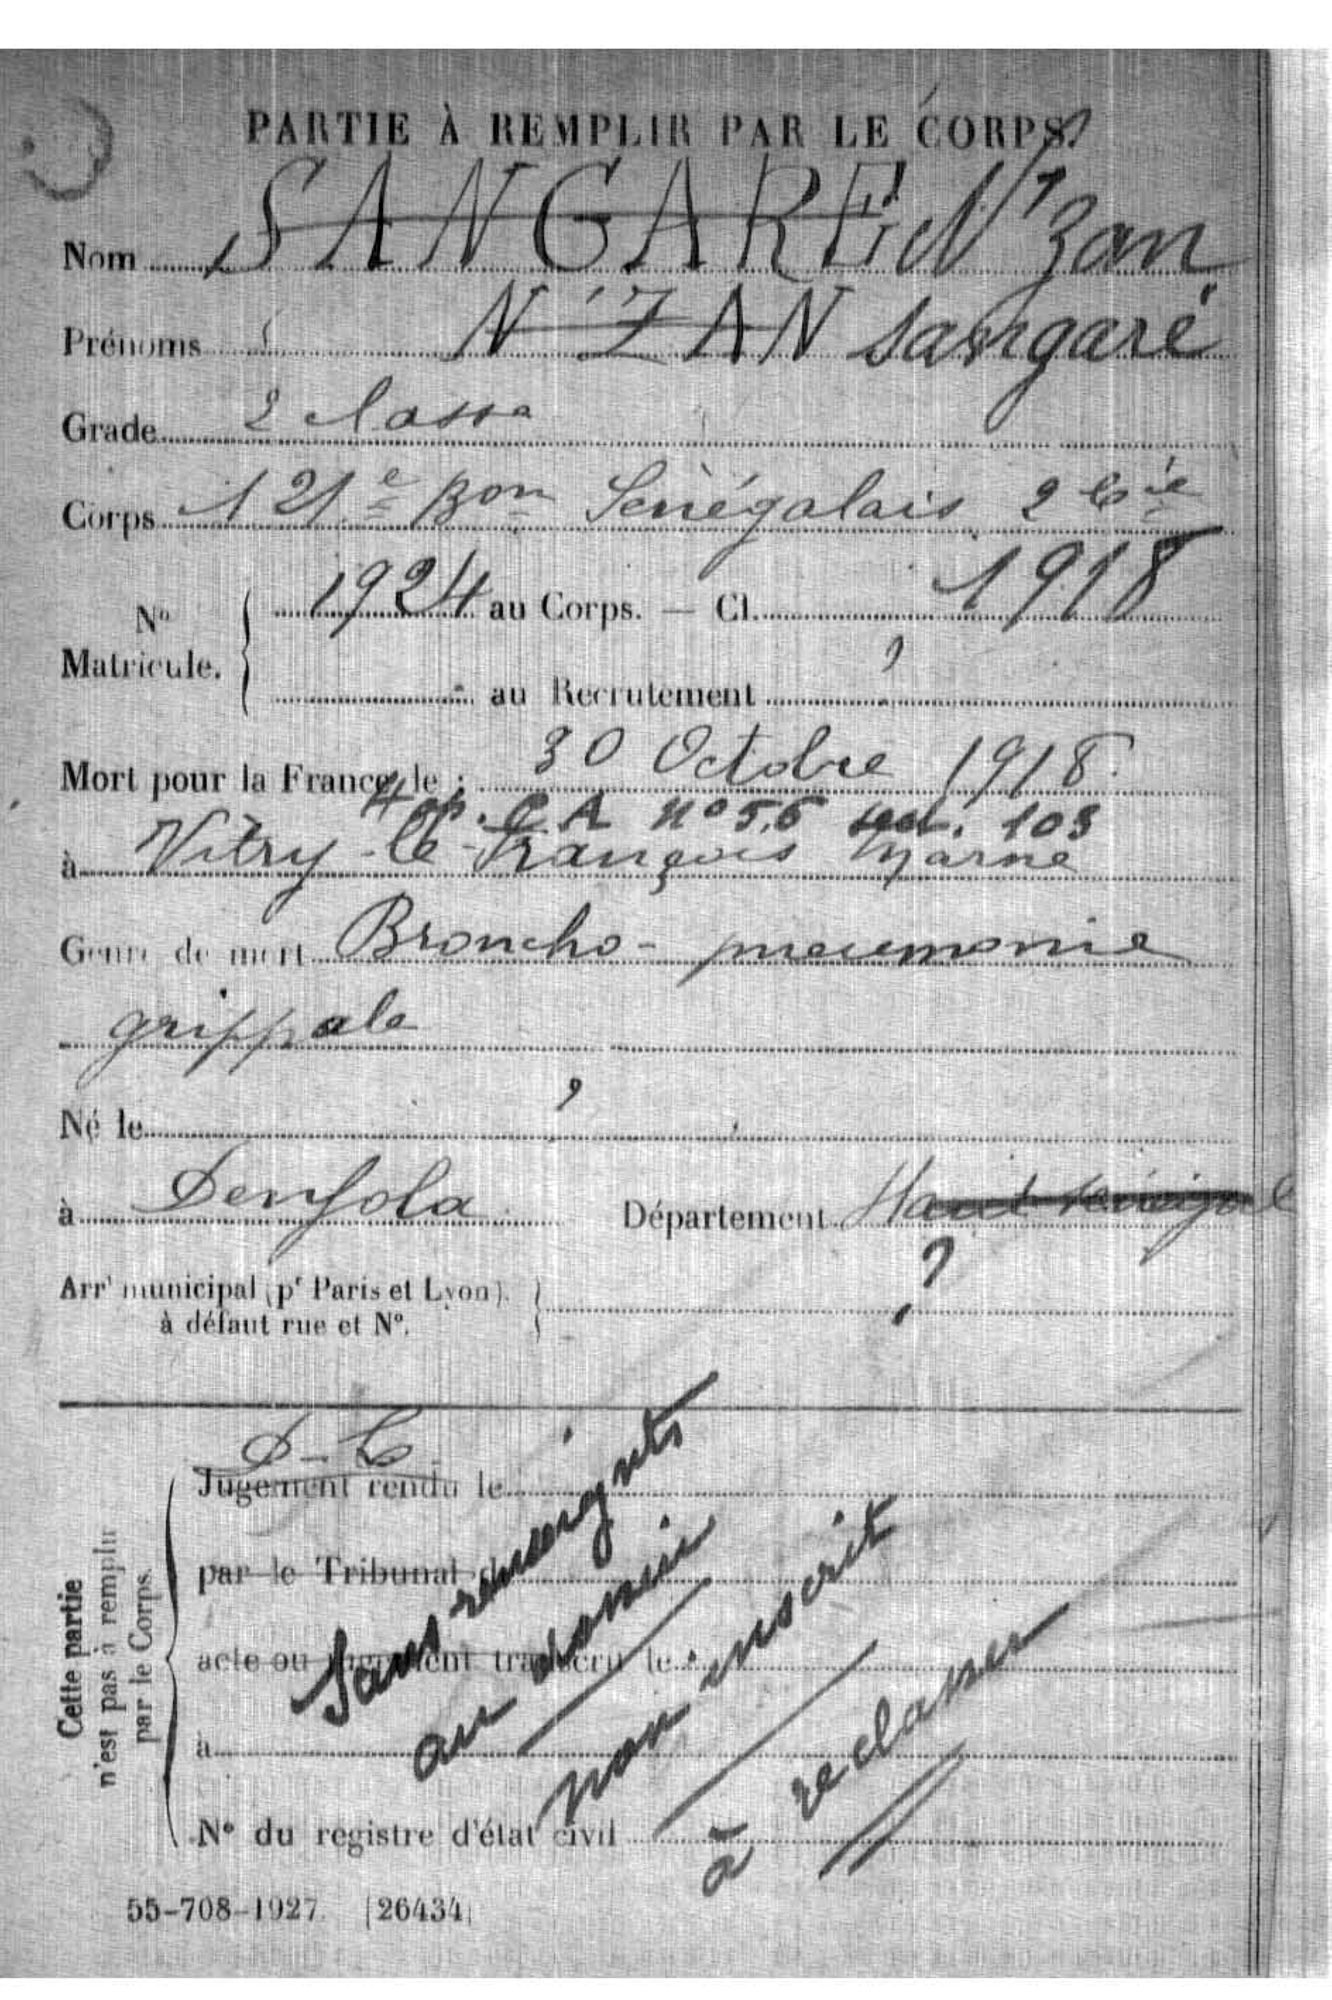 PARTIE À REMPLIR PAR LE CORPS.
Nom SANGARÉ N'Zan
Prénoms N'ZAN Sangaré
Grade 2 classe
Corps 121e Bon Sénégalais 2 Cie
No Matricule. 1924 au Corps. — Cl. 1918
au Recrutement ?
Mort pour la France le : 30 Octobre 1918.
Hop. C A no 5,6 sect. 103
à Vitry-le-François Marne
Genre de mort Broncho-pneumonie
grippale
Né le ?
à Denfola Département Haut Sénégal
?
Arrt municipal (pr Paris et Lyon),
à défaut rue et No.
D-C
Cette partie
n'est pas à remplir
par le Corps.
Jugement rendu le
par le Tribunal de
acte ou jugement transcrit le
à
No du registre d'état civil
Sans renseignts
au dossier
non inscrit
à reclasser
55-708-1927. [26434]